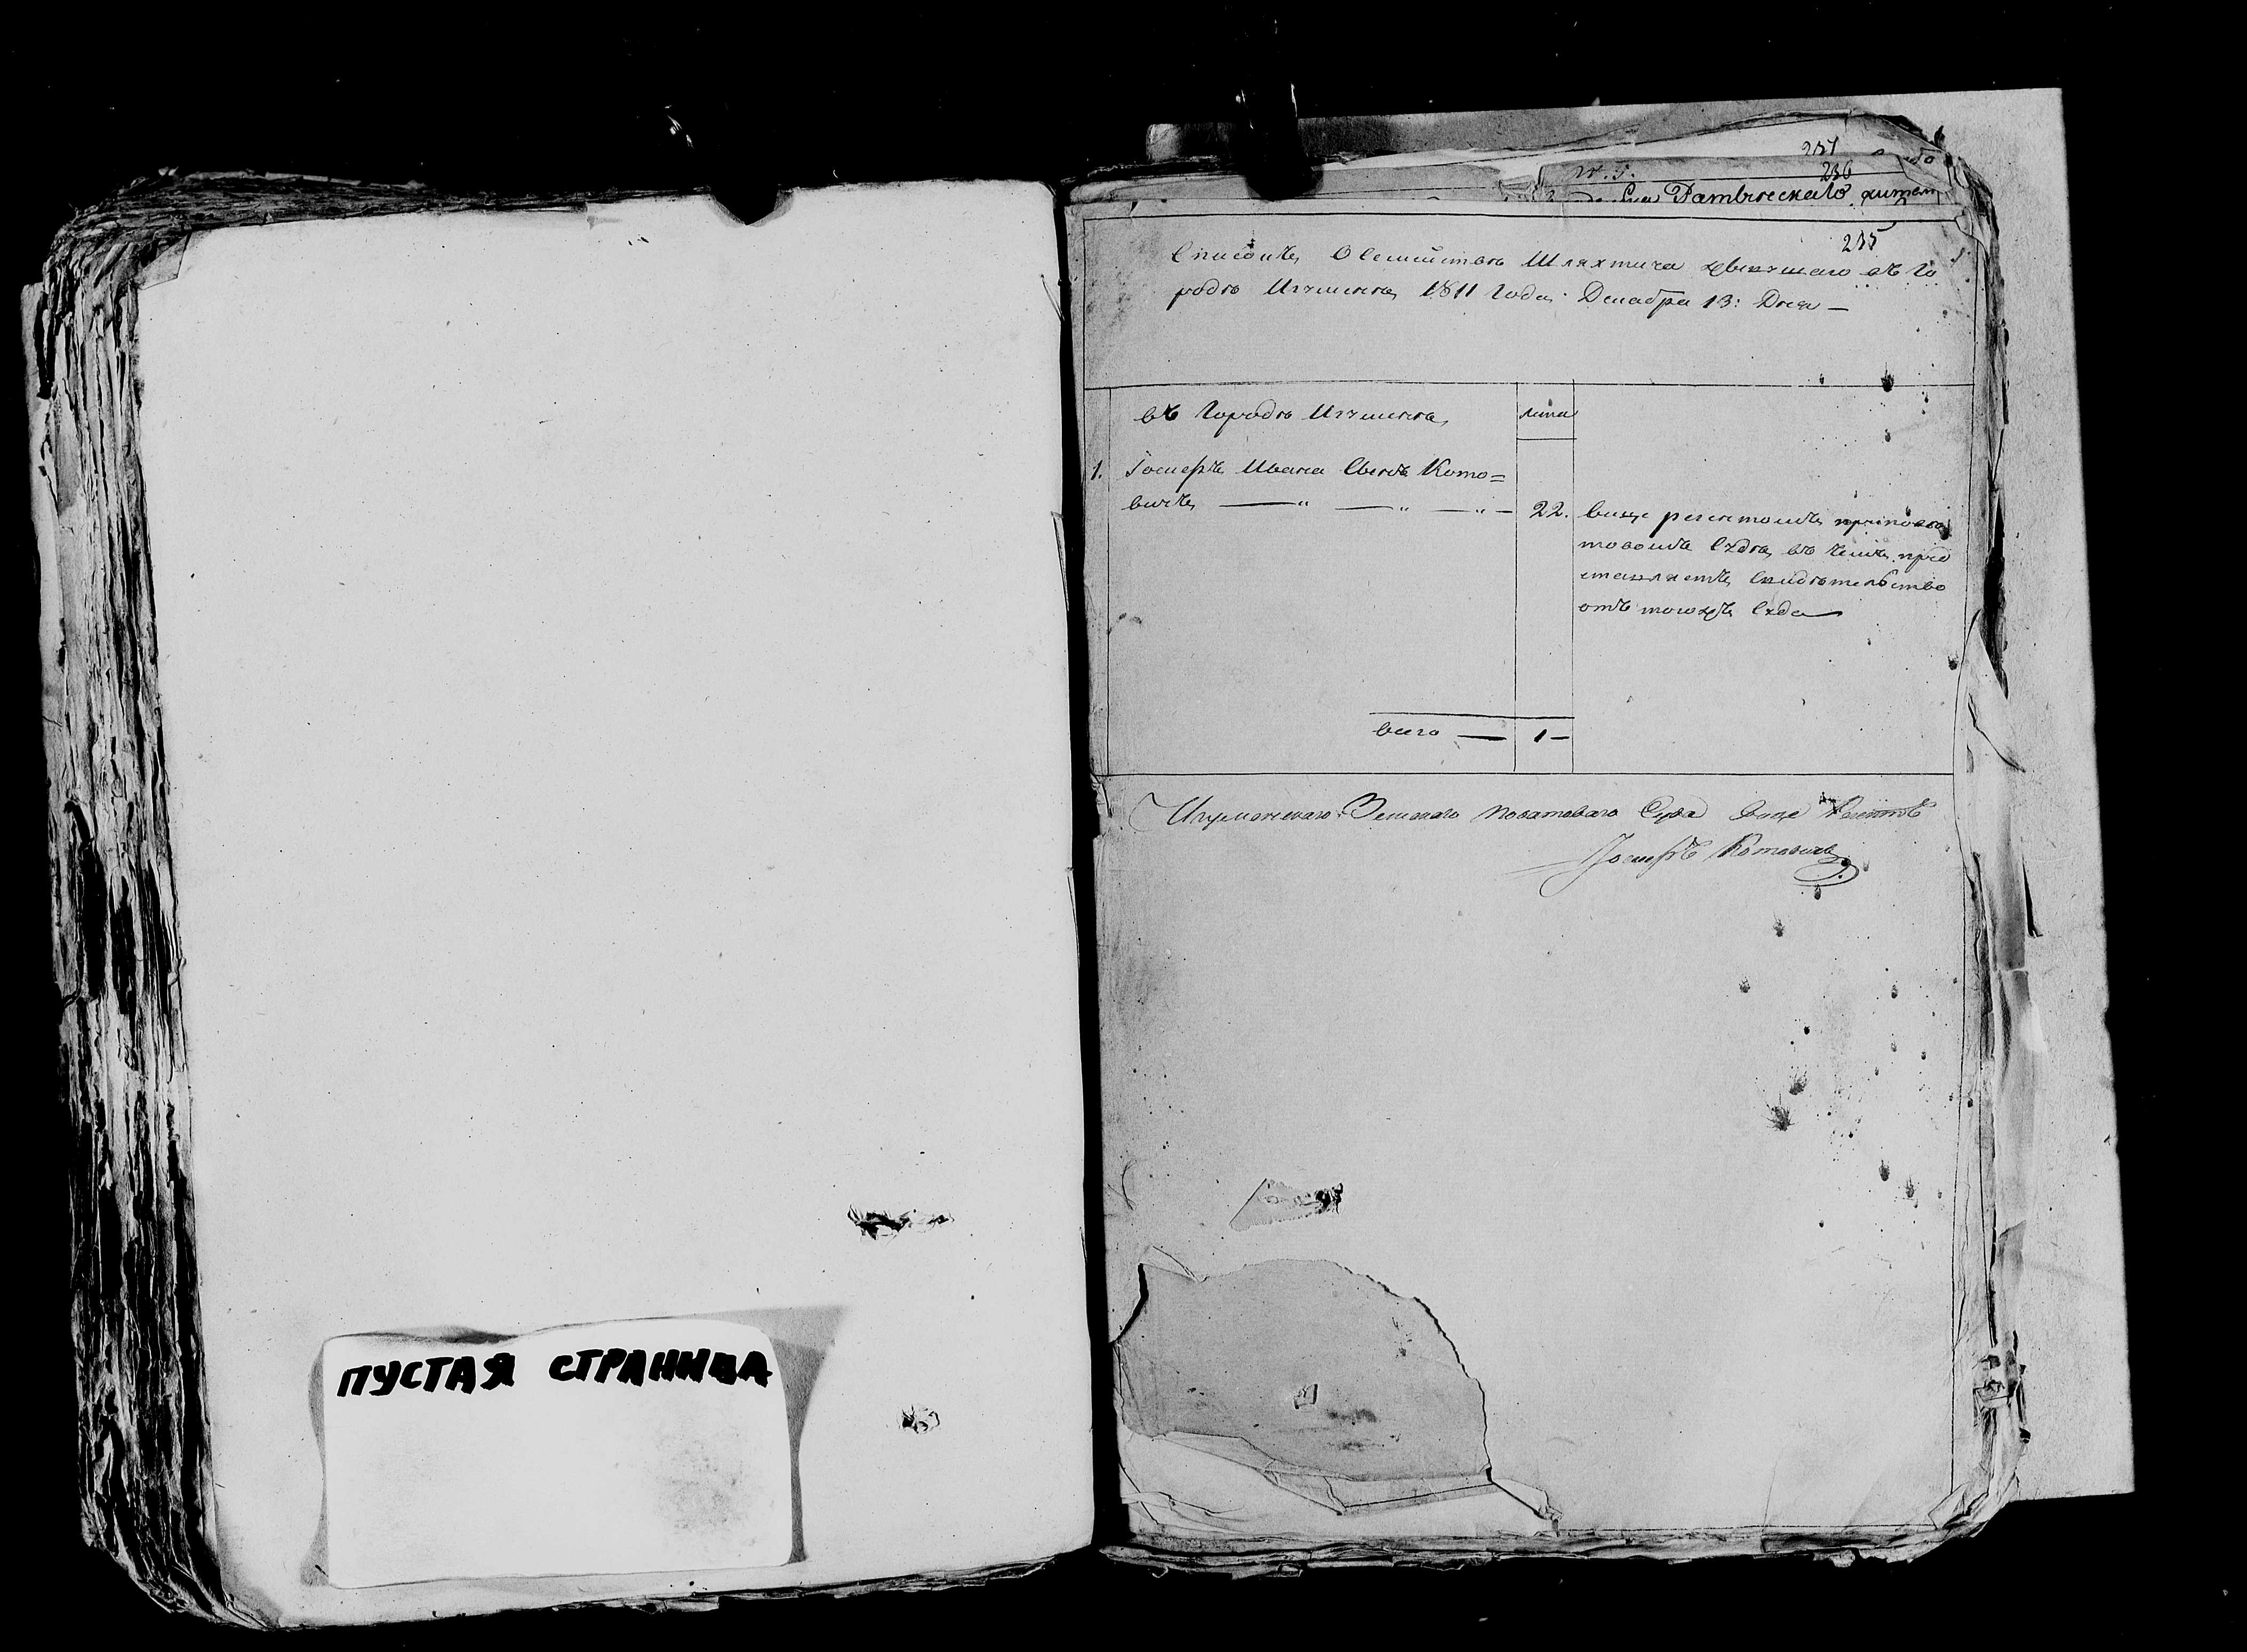 ПУСТАЯ СТРАНИЦА
237
236
235
Списокъ О Семействѣ Шляхтича живущаго въ Го
родѣ Игуменѣ 1811 Года Декабря 13: Дня —
въ Городѣ Игуменѣ
лѣта
1. Іосифъ Ивана Сынъ Кото=
вичъ — „ — „ — „ —
22.
вице регентомъ приповѣ
товомъ Судѣ, въ чемъ пред
ставляетъ Свидѣтельство
отъ тогожъ Суда
всего — 1 —
Игуменскаго Земскаго Поватоваго Суда Вице Регентъ
Іосифъ Котовичъ